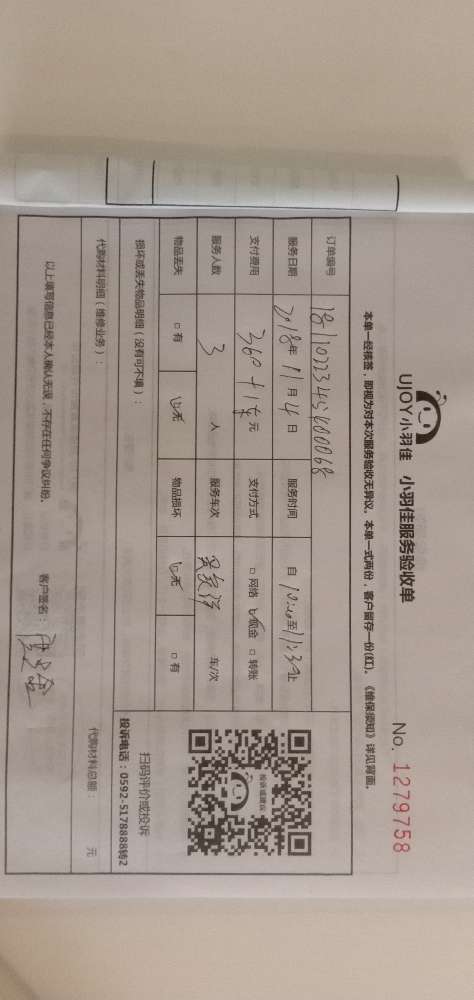 UJOY小羽佳 小羽佳服务验收单
No. 1279758
本单一经核签，即视为对本次服务验收无异议。本单一式两份，客户留存一份(红)。《维保须知》详见背面。
订单编号
服务日期 2018年 11月 4日 服务时间 自 10:00至11:30止
支付费用 360+15元 支付方式 □ 网络 ☑现金 □ 转账
服务人数 3 人 服务车次 车/次
物品丢失 □ 有 ☑无 物品损坏 ☑无 □ 有
损坏或丢失物品明细（没有可不填）：
代购材料明细（维修业务）： 代购材料总额： 元
以上填写信息已经本人确认无误，不存在任何争议纠纷。
客户签名：
投诉或建议
扫码评价或投诉
投诉电话：0592-5178888转2